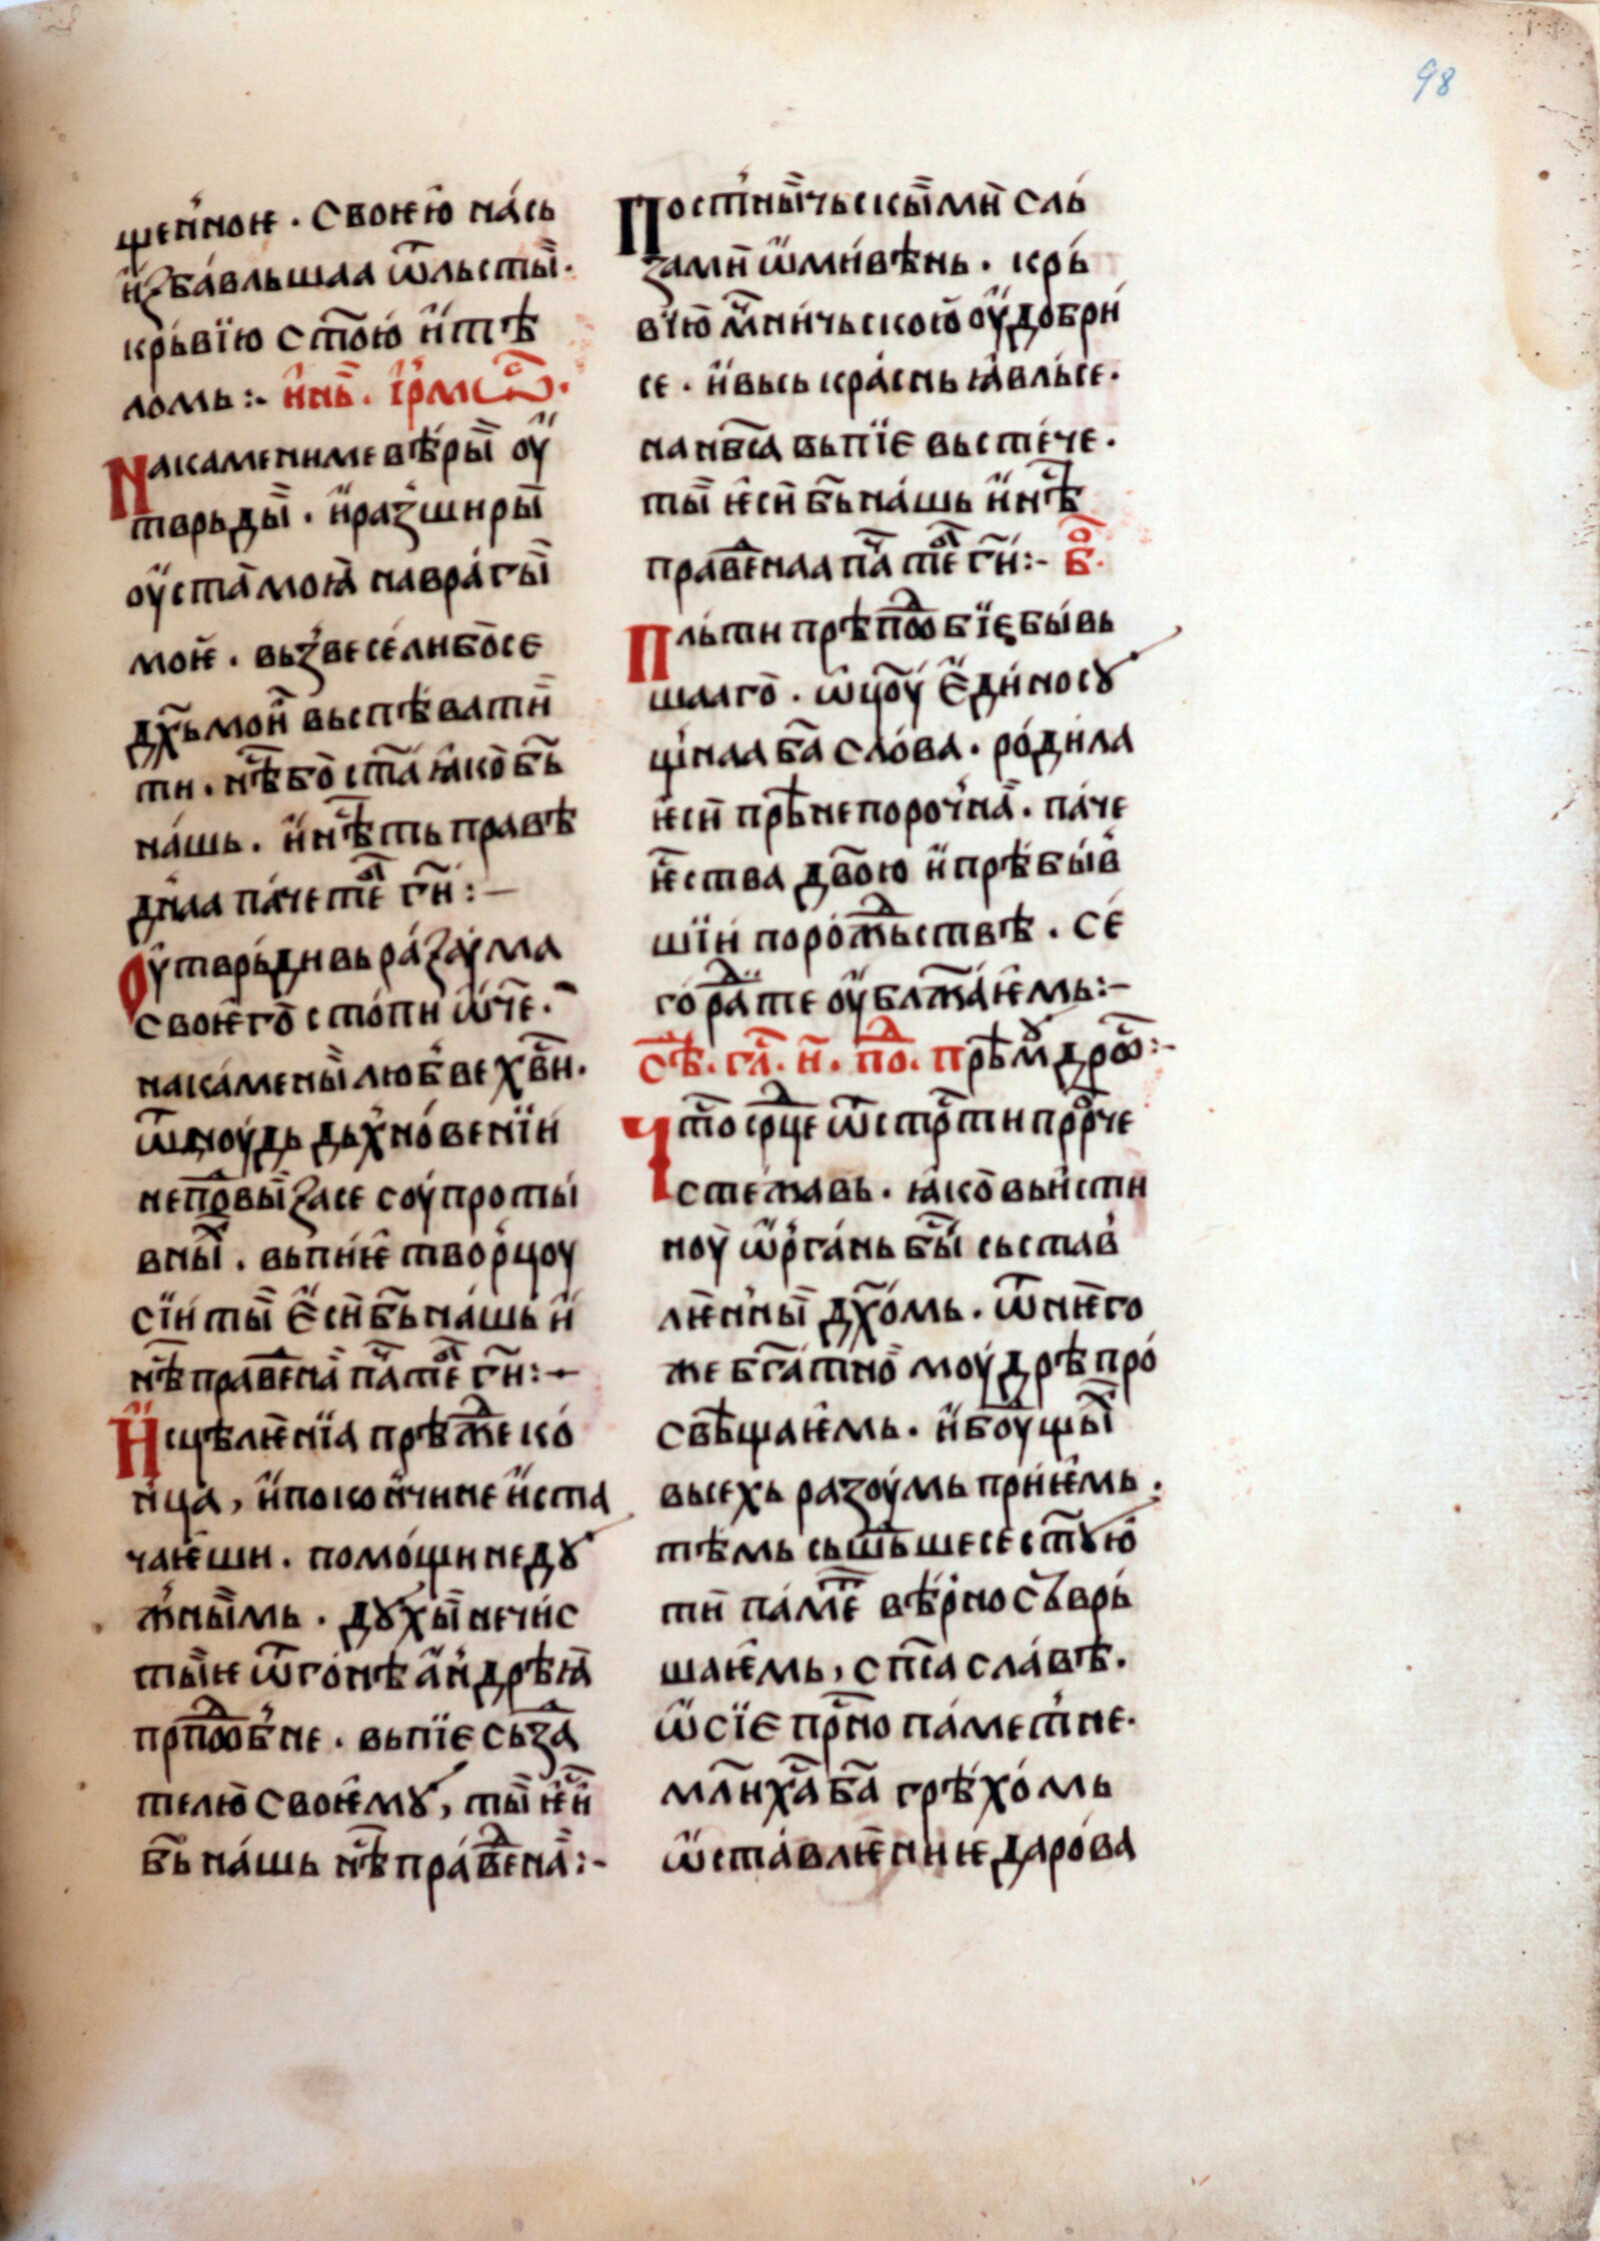 98
щен́нои҆е . своѥ҆ю на́сь
и҆ꙁба́вльшаа ѿльсты̏.
кр́ьвїю ст҃ою и҆тѣ
ломь :- и҆нь̏ . і҆рмѡ҃с.
Накаменимевѣ́ры̏ оу҆
тврьды̏ . и҆раꙁ̾ширы̏
оу҆ста̀моꙗ̀ навра́гы̏
моѥ̀ . вьꙁ̾весе́либо̀се
дх҃ьмои̏ вьспѣ́вати̏
ти . нѣ҃бо̀ ст҃а ꙗ҆ко̀ б҃ь
на́шь . и҆нѣ҃ть правѣ
д́наа па́чете҃ г҃и :—
Оу҆тврь́дивьра́ꙁоу́ма
своѥ҆го̀ стопи ѿч҃е .
нака́мены̏люб́ве х҃ви .
ѿноу́дь дьх́нове́нїи
непо҃вы̏ꙁасе соу́проты́
вны̏ . вьпи́ѥ҆ твор́цоу
сїи ты̏ є҆си̏ б҃ьна́шь и҆
нѣ҃правена̀ па҃те҃ г҃и :-
И҆сцѣлѥ́нїа прѣж҃е ко́
н́ца , и҆покон́чине и҆ста
чаѥ҆ши . помо́щи недꙋ
ж́ны̏мь . дꙋ́хы̏ нечи́с
ты̏ѥ ѿго́нѣ а҆н́дрѣꙗ̀
прпⷣоб́не . вьпїе сьꙁа
телю̀ своѥ҆мꙋ , ты̏ ѥ҆и҃
б҃ь на́шь нѣ҃пра́веⷣна̀ :-
Пост́ны̏чьскы̏ми̏ сль́
ꙁами̏ ѡ҆ми́вѣнь . крь́
вїю̀ м҃ни́чьскою̀ оу҆до́бри́
се . и҆вьсь кра́снь ꙗ҆влькⸯсе .
нанб҃са вьпїе вьсте́че .
ты̏ ѥ҆си̏ б҃ьна́шь и҆нѣ҃
правеⷣнаа па҃ те҃ г҃и :- б҃ .
Пль́ти прѣпⷣѡбїебы́вь
шааго̀ . ѡ҆ц҃оу̀ є҆ди́носꙋ
щ́наа б҃а сло́ва . роди́ла
ѥ҆си̏ прѣ҃непороч́на̀ . па́че
ѥ҆ства дво҃ю и҆прѣбы́в
шїи́ порожⷣьствѣ . се́
го́ раⷣ те оу҆блж҃аѥ҆мь :-
Сѣ҃ . гл҃ . и҃ . поⷣ . прѣмꙋ́дрѡ҃ :-
Что҃ срⷣце ѿстр҃ти пррⷪ҇че
стежавь . ꙗ҆ко̀ вьи́сти
ноу̀ ѡ҆рга́нь бы҃ сьстав́
лѥн́ны̏ дх҃о́мь . ѿнѥ҆го
же бг҃а́тно̀ моу́дрѣ про́
свѣ́щаѥ҆мь . и҆боу́щы̏
высехь раꙁоу́мь при́ѥ҆мь .
тѣ́мь сьш́ьшесе ст҃ꙋю̀
ти̏ па́ме҃ вѣ́рно съврь́
шаѥ҆мь , сп҃са сла́вѣ .
ѡ҆сїе пр҃но па́мет́не .
мл҃и х҃а б҃а грѣхо́мь
ѡ҆ста́влѥ́ниѥ даро́ва